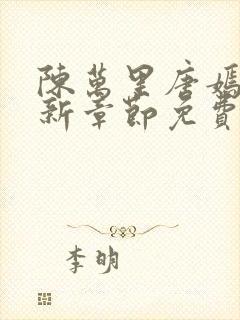 陳萬里唐嫣
新章節免費
李明